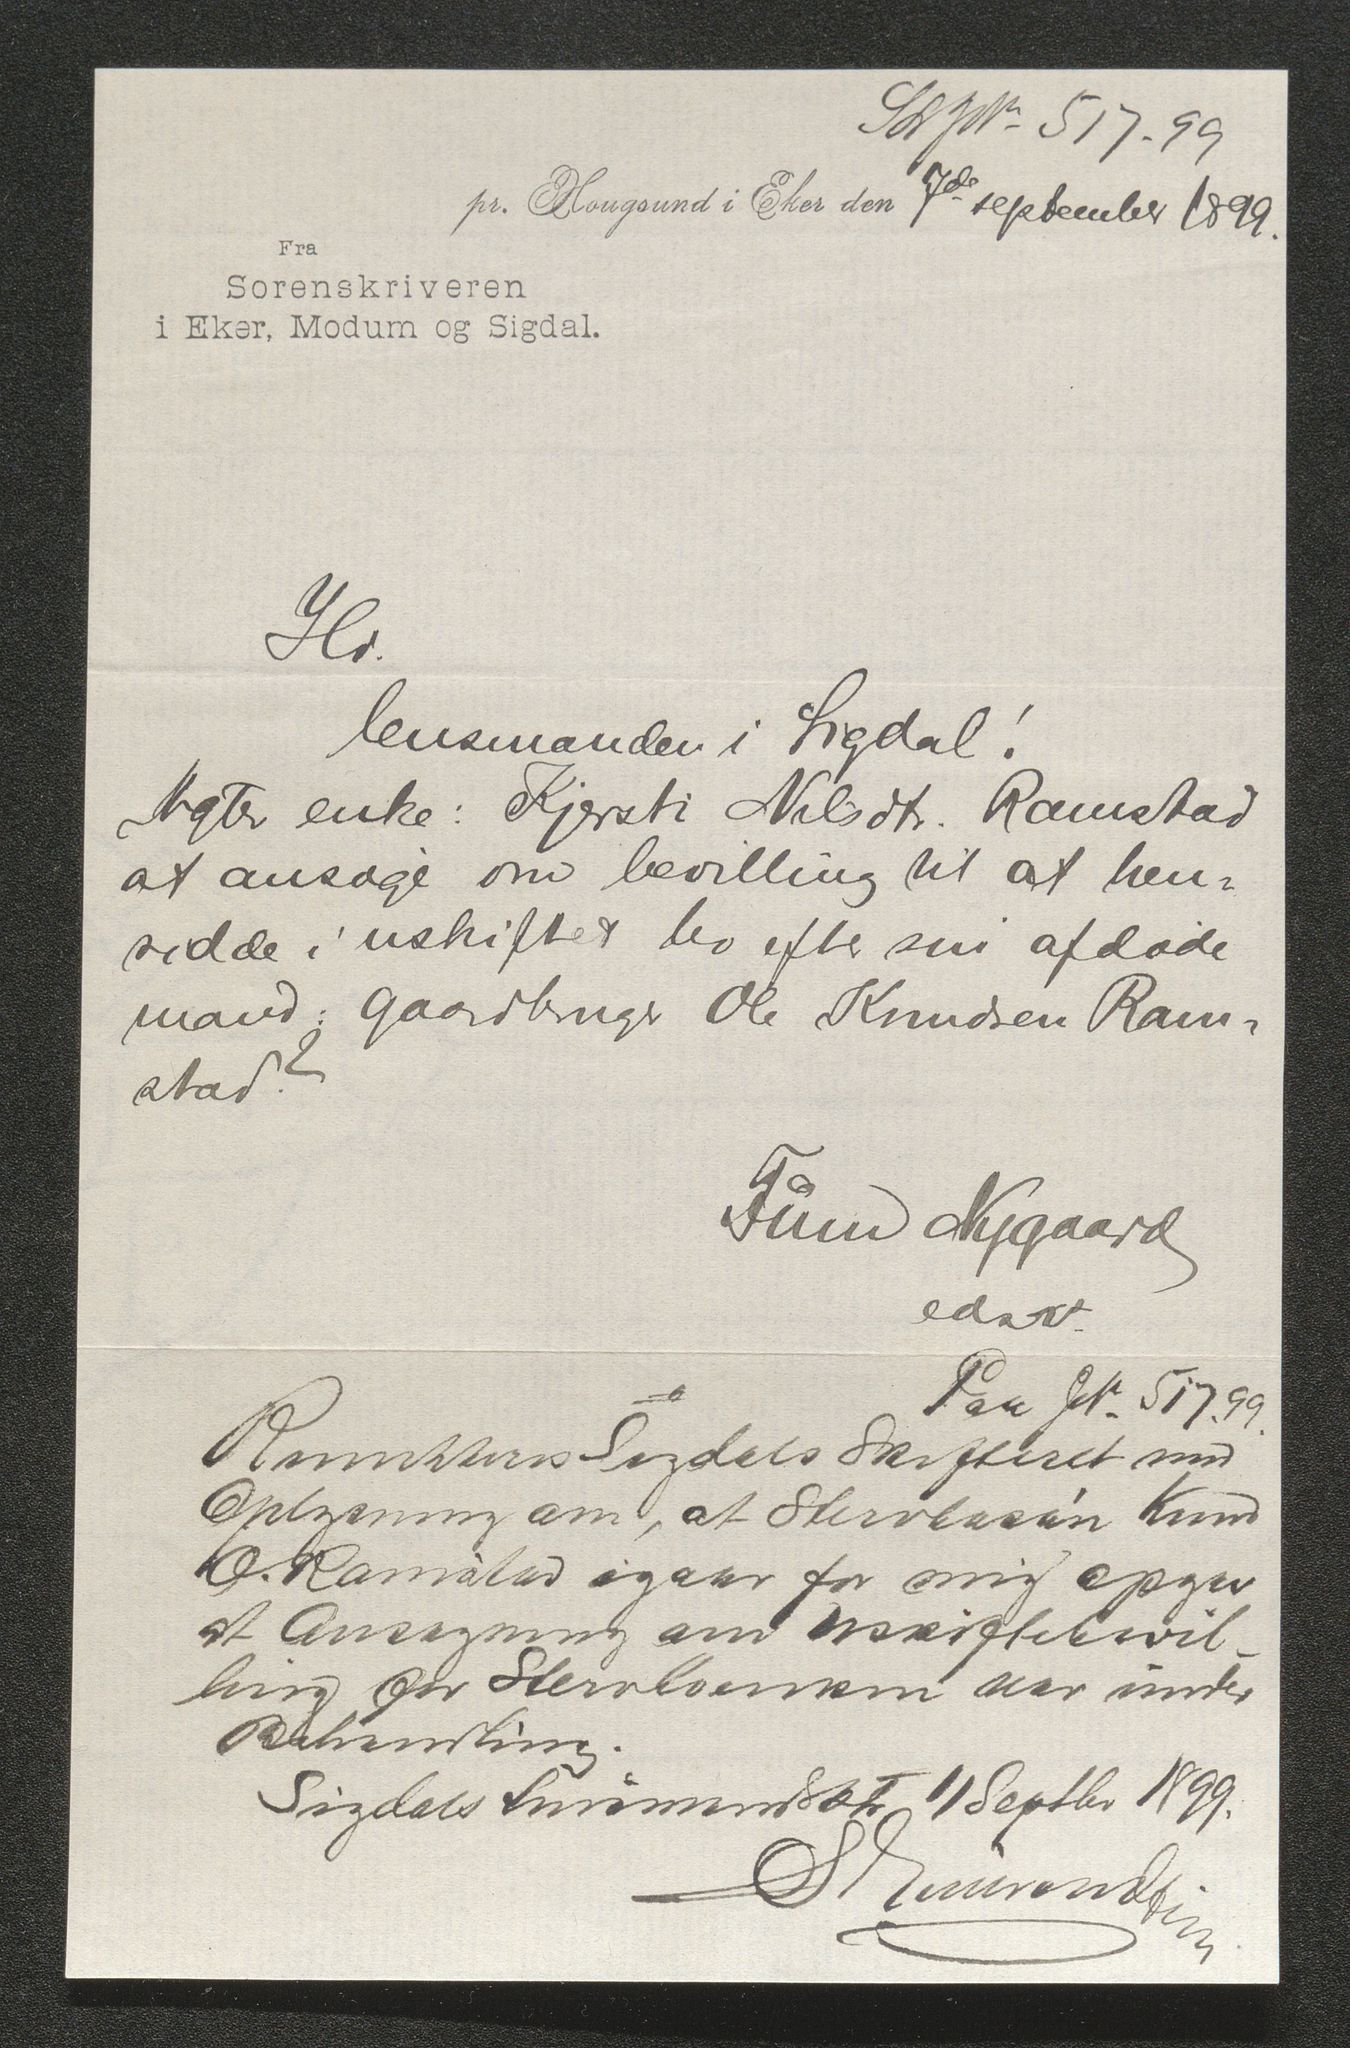 JNr. 517-99
pr. Hougsund i Eker den 7de september 1899.
Fra
Sorenskriveren
i Eker, Modum og Sigdal.
Hr.
lensmanden i Sigdal!
Agter enke: Kjersti Nilsdtr. Ramstad
at ansøge om bevilling til at hen-
sidde i uskiftet bo efter sin afdøde
mand: gaardbruger Ole Knudsen Ram-
stad?
Finn Nygaard
edsv.
Paa JNr. 517.99.
Sigdals Skifteret med
Oplysning om, at Stervbosøn Knud
O. Ramstad igaar for mig opgav
at Ansøgning om Uskiftebevil-
ling for Stervboenken var under
Behandling.
Sigdals Lensmandsktr 11 Septbr 1899.